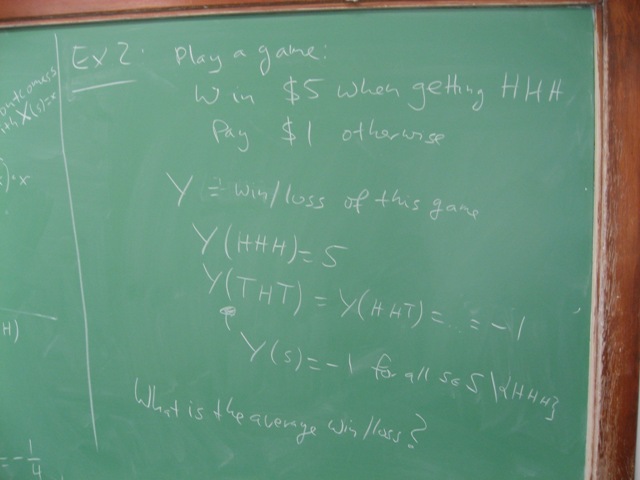 outcomes
with X(s)=x
)·x
H)
=-1/4
Ex 2: Play a game:
Win $5 when getting HHH
Pay $1 otherwise
Y = win/loss of this game
Y(HHH)=5
Y(THT) = Y(HHT)=...=-1
Y(s)=-1 for all s∈S\{HHH}
What is the average win/loss?